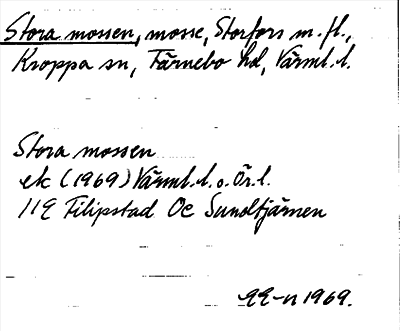 Stora mossen, mosse, Storfors m.fl.,
Kroppa sn, Färnebo hd, Värml. l.
Stora mossen
ek (1969) Värml. l. o. Ör. l.
11E Filipstad 0c Sundtjärnen
1969.